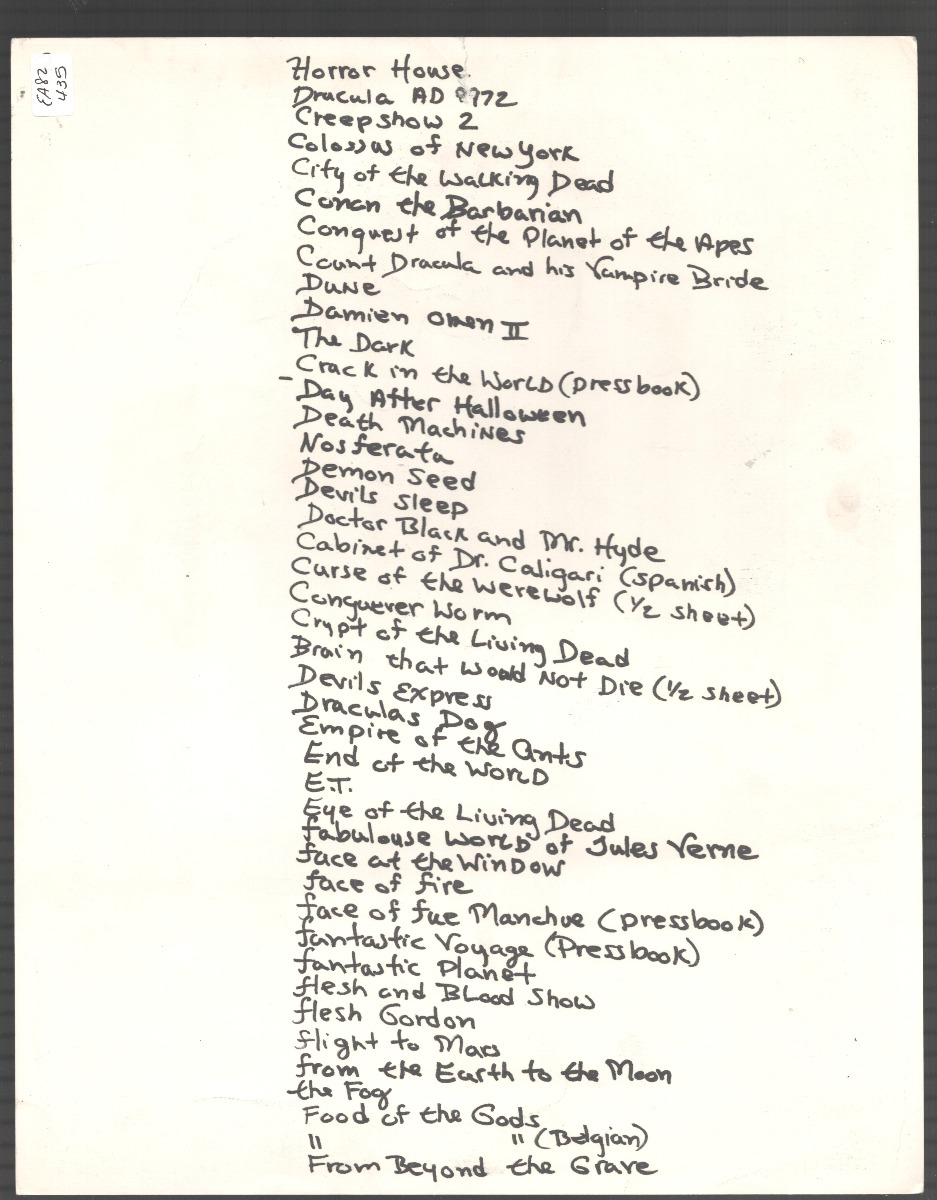 EA82
435
Horror House
Dracula AD 1972
Creepshow 2
Colossus of New York
City of the Walking Dead
Conan the Barbarian
Conquest of the Planet of the Apes
Count Dracula and his Vampire Bride
Dune
Damien Omen II
The Dark
Crack in the World (pressbook)
- Day After Halloween
Death Machines
Nosferata
Demon Seed
Devils Sleep
Doctor Black and Mr. Hyde
Cabinet of Dr. Caligari (Spanish)
Curse of the Werewolf (1/2 sheet)
Conquerer Worm
Crypt of the Living Dead
Brain that Would Not Die (1/2 sheet)
Devils Express
Draculas Dog
Empire of the Ants
End of the World
E.T.
Eye of the Living Dead
fabulouse World of Jules Verne
face at the Window
face of fire
face of fue Manchue (pressbook)
fantastic Voyage (Pressbook)
fantastic Planet
flesh and Blood Show
flesh Gordon
flight to Mars
from the Earth to the Moon
the Fog
Food of the Gods
" " (Belgian)
From Beyond the Grave